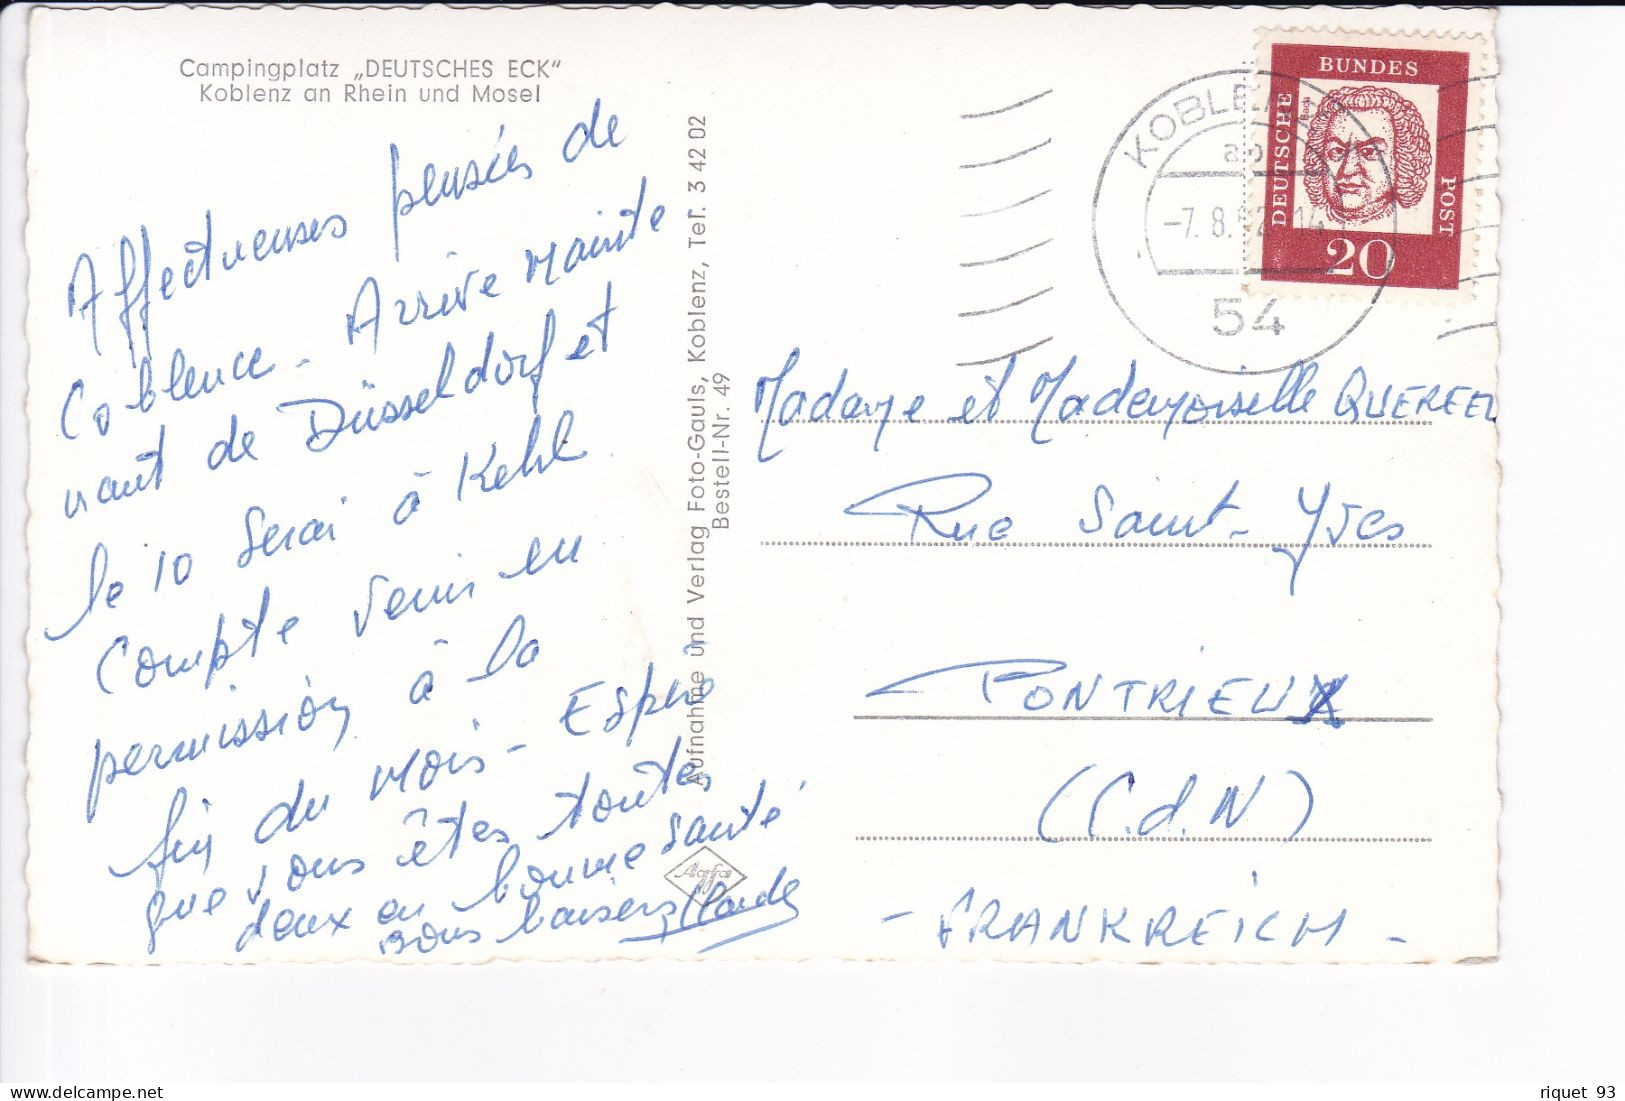 Campingplatz „DEUTSCHES ECK"
Koblenz an Rhein und Mosel
Affectueuses pensées de
Coblence - Arrive mainte
nant de Düsseldorf et
le 10 serai à Kehl.
Compte venir en
permission à la
fin du mois - Espère
que vous êtes toutes
deux en bonne santé
vous baisers Claude
Aufnahme und Verlag Foto-Gauls, Koblenz, Tel. 3 42 02
Bestell-Nr. 49
Agfa
BUNDES
POST
DEUTSCHE
Bach
20
KOBLENZ
-7. 8. 62 14
54
Madame et Mademoiselle QUEREEL
Rue Saint-Yves
PONTRIEUX
(C.d.N)
- FRANKREICH -
riquet 93